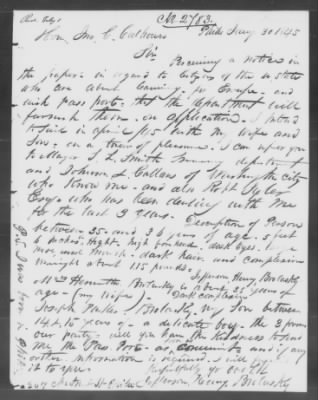 M 2783
Hon. Jno. C. Calhoun
Phila Jany 30 1845
Sir
Perceiving a notice in
the papers in regard to citizens of the U States
who are about leaving for Europe and
wish pass ports that the Department will
furnish them on application. I intend
to sail in april 15 with my wife and
Son on a tour of pleasure. I can refer you
to Major T. L. Smith Treasury department
and Johnson L. of Washington city
who Know me and also Robt Tyler
Esqr who has been dealing with me
for the last 3 years. Description of Person
between 35 and 36 years of age. 5 feet
6 inches hight, high forehead, dark eyes,
nose and mouth dark hair and complexion
weight about 115 pounds. Jefferson Henry
Mrs Henrietta is about 35 years of
age (my wife) Dark complexion
Joseph Parker my Son between
14 & 15 years of a delicate boy. the 3 form
our party will you have the kindness to send
me the Pass Ports as and if any
other information is required I will
it to you. Respectfully yr
307 North St Phila Jefferson Henry
P.S. I was born in